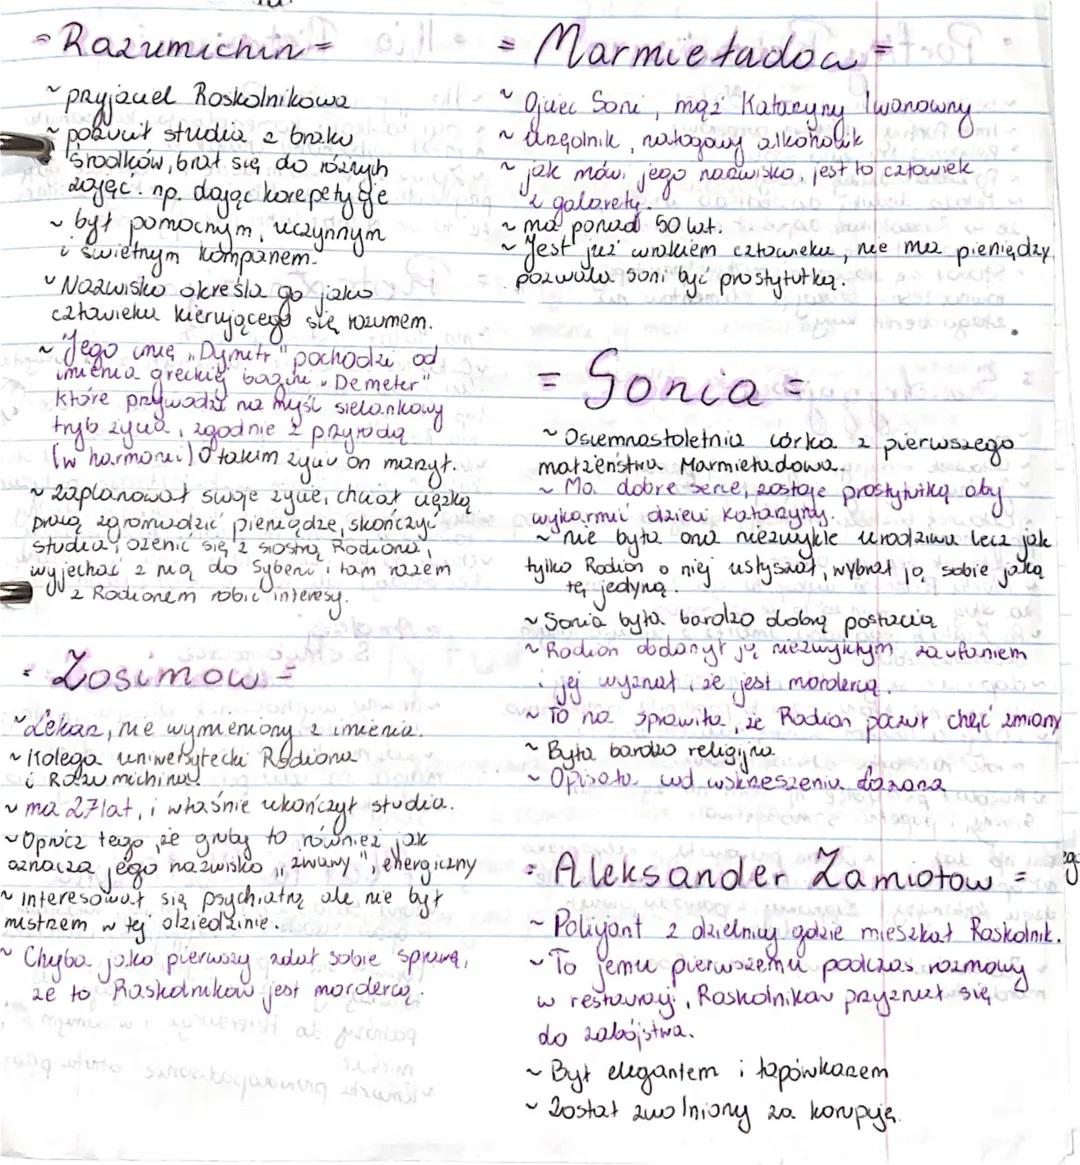 = Razumichin =
~ pryjaciel Roskolnikowa
~ porzucił studia z braku
środków, brał się do różnych
zajęć. np. dając korepetycje
~ był pomocnym, uczynnym
i świetnym kompanem.
~ Nazwisko określa go jako
człowieka kierującego się rozumem.
~ Jego imię "Dymitr" pochodzi od
imienia greckiej bogini "Demeter"
które przywodzi na myśl sielankowy
tryb życia, zgodnie z przyrodą
(w harmonii) O takim życiu on marzył.
~ zaplanował swoje życie, chciał ciężką
pracą zgromadzić pieniądze, skończyć
studia, ożenić się z siostrą Rodiona,
wyjechać z nią do Syberii i tam razem
z Rodionem robić interesy.
= Zosimow =
~ Lekarz, nie wymieniony z imienia.
~ Kolega uniwersytecki Rodiona
i Razumichina.
~ ma 27 lat, i właśnie ukończył studia.
~ Oprócz tego, że gruby to również jak
oznacza jego nazwisko "żwawy", energiczny
~ interesował się psychiatrią ale nie był
mistrzem w tej dziedzinie.
~ Chyba jako pierwszy zdał sobie sprawę,
że to Raskolnikow jest mordercą.
= Marmieładow =
~ Ojciec Soni, mąż Katarzyny Iwanowny
~ Urzędnik, nałogowy alkoholik
~ jak mówi jego nazwisko, jest to człowiek
z galarety.
~ ma ponad 50 lat.
~ Jest już wrakiem człowieka, nie ma pieniędzy,
pozwala Soni być prostytutką.
= Sonia =
~ Osiemnastoletnia córka z pierwszego
małżeństwa Marmieładowa.
~ Ma dobre serce, zostaje prostytutką aby
wykarmić dzieci Katarzyny.
~ nie była ona niezwykle urodziwa lecz jak
tylko Rodion o niej usłyszał, wybrał ją sobie jaką
tę jedyną.
~ Sonia była bardzo dobrą postacią
~ Rodion obdarzył ją niezwykłym zaufaniem
i jej wyznał, że jest mordercą.
~ To na sprawiła, że Rodion poczuł chęć zmiany
~ Była bardzo religijna
~ Opisała cud wskrzeszenia Łazarza
= Aleksander Zamiotow =
~ Policjant z dzielnicy gdzie mieszkał Raskolnik.
~ To jemu pierwszemu podczas rozmowy
w restauracji, Raskolnikow przyznał się
do zabójstwa.
~ Był elegantem i łapówkarzem
~ Został zwolniony za korupcję.